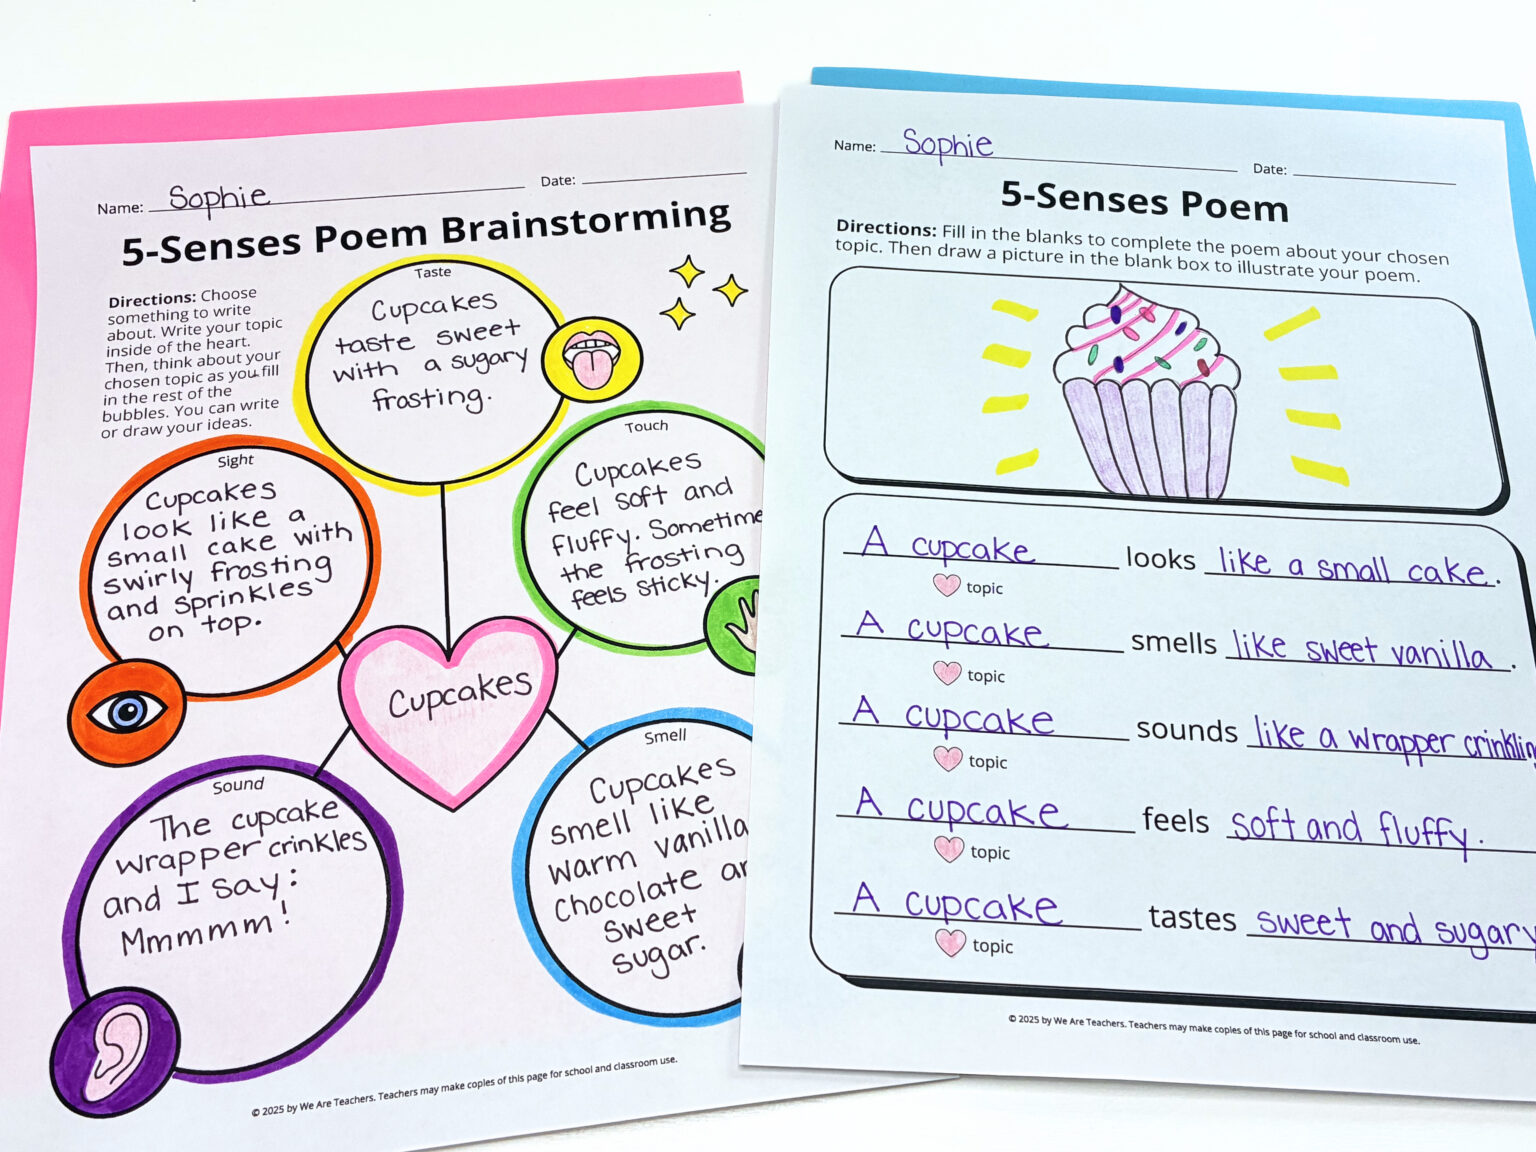 Name: Sophie Date:
5-Senses Poem Brainstorming
Directions: Choose
something to write
about. Write your topic
inside of the heart.
Then, think about your
chosen topic as you fill
in the rest of the
bubbles. You can write
or draw your ideas.
Taste
Cupcakes
taste sweet
with a sugary
frosting.
Touch
Cupcakes
feel soft and
fluffy. Sometime
the frosting
feels sticky.
Sight
Cupcakes
look like a
small cake with
swirly frosting
and sprinkles
on top.
Cupcakes
Sound
The cupcake
wrapper crinkles
and I say:
Mmmmm!
Smell
Cupcakes
smell like
warm vanilla
chocolate an
sweet
sugar.
© 2025 by We Are Teachers. Teachers may make copies of this page for school and classroom use.
Name: Sophie Date:
5-Senses Poem
Directions: Fill in the blanks to complete the poem about your chosen
topic. Then draw a picture in the blank box to illustrate your poem.
A cupcake looks like a small cake.
topic
A cupcake smells like sweet vanilla.
topic
A cupcake sounds like a wrapper crinklin
topic
A cupcake feels soft and fluffy.
topic
A cupcake tastes sweet and sugary
topic
© 2025 by We Are Teachers. Teachers may make copies of this page for school and classroom use.